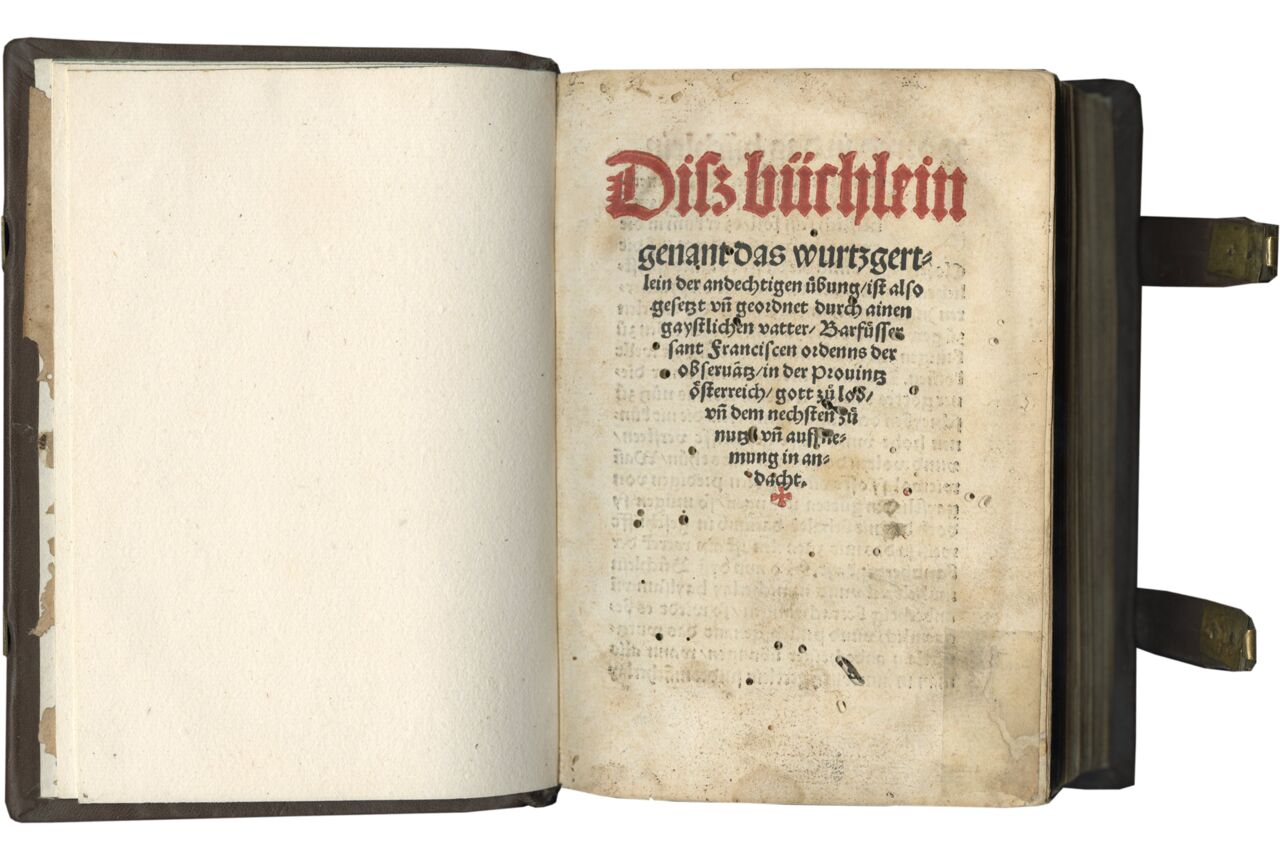 Diſz büchlein
genant das wurtzgert⸗
lein der andechtigen übung/iſt alſo
geſetzt vn̄ geordnet durch ainen
gayſtlichen vatter/ Barfüſſer
ſant Franciſcen ordenns der
obſeruātz/in der Prouintz
öſterreich/ gott zů lob/
vn̄ dem nechſten zů
nutz/ vn̄ auffne⸗
mung in an⸗
dacht.